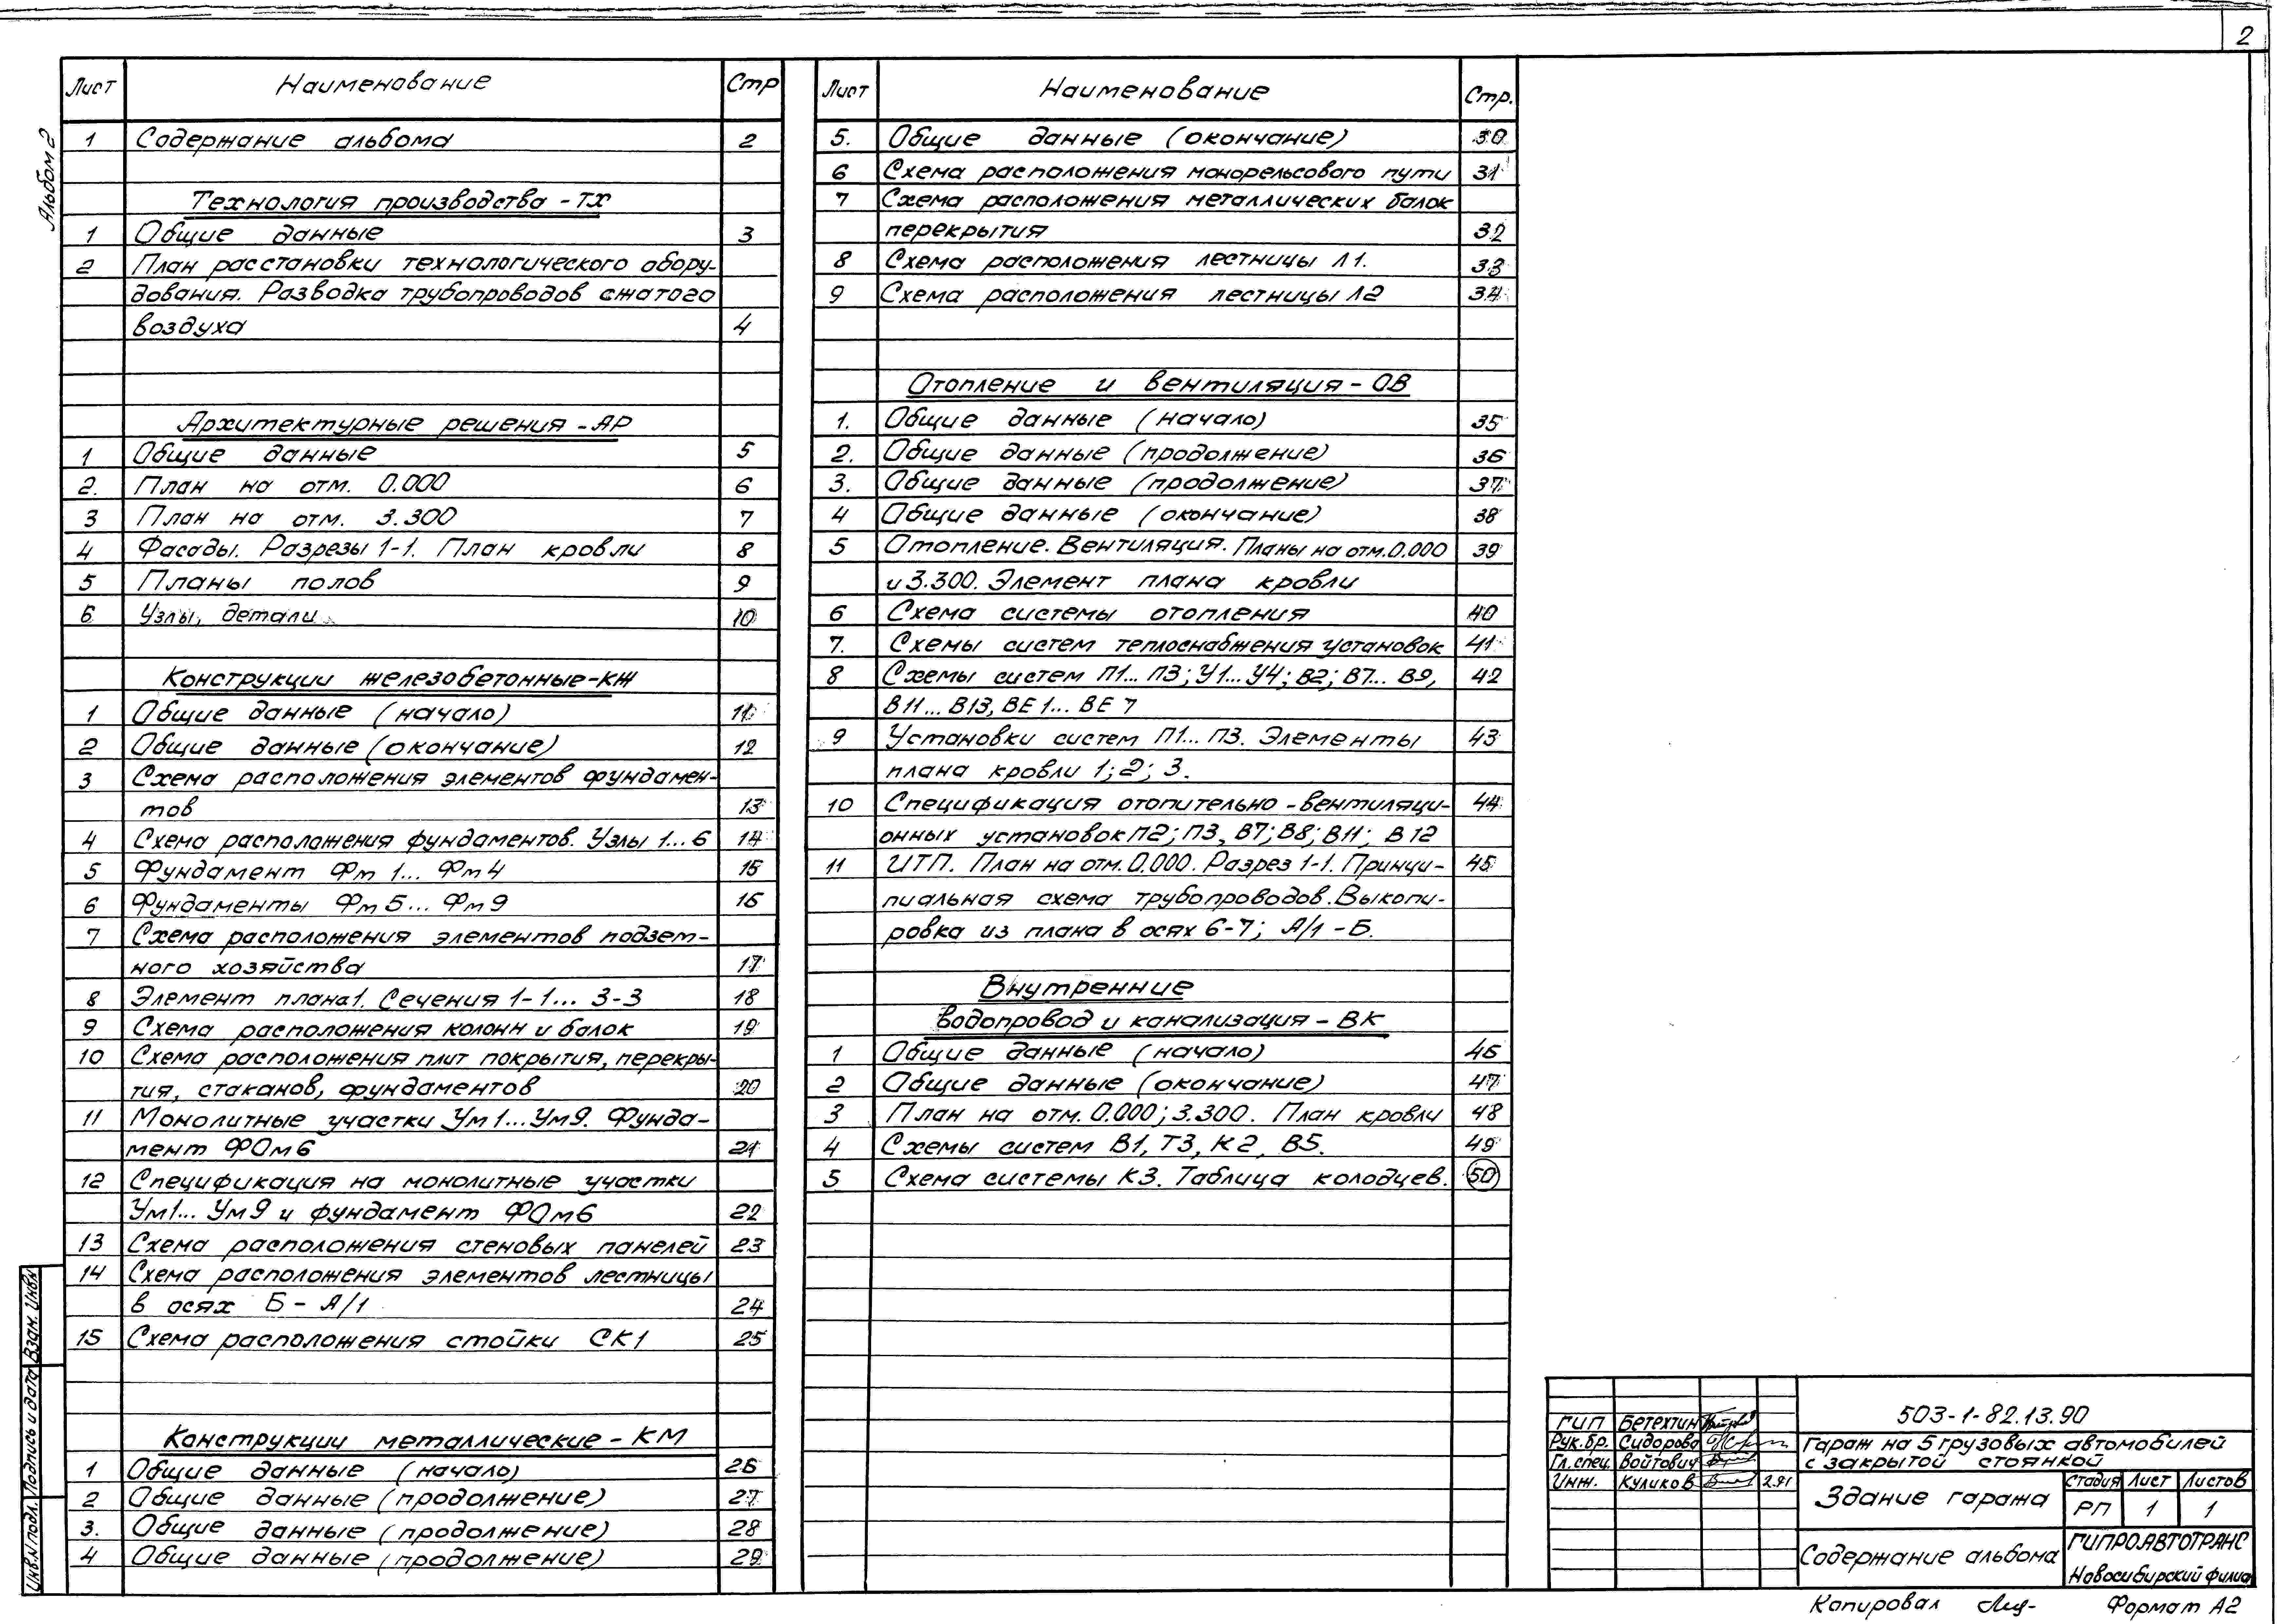 2
Альбом 2
Лист Наименование Стр
1 Содержание альбома 2
Технология производства - ТХ
1 Общие данные 3
2 План расстановки технологического обору-
дования. Разводка трубопроводов сжатого
воздуха 4
Архитектурные решения - АР
1 Общие данные 5
2. План на отм. 0.000 6
3 План на отм. 3.300 7
4 Фасады. Разрезы 1-1. План кровли 8
5 Планы полов 9
6 Узлы, детали 10
Конструкции железобетонные-КЖ
1 Общие данные (начало) 11
2 Общие данные (окончание) 12
3 Схема расположения элементов фундамен-
тов 13
4 Схема расположения фундаментов. Узлы 1...6 14
5 Фундамент Фм 1... Фм 4 15
6 Фундаменты Фм 5... Фм 9 16
7 Схема расположения элементов подзем-
ного хозяйства 17
8 Элемент плана 1. Сечения 1-1... 3-3 18
9 Схема расположения колонн и балок 19
10 Схема расположения плит покрытия, перекры-
тия, стаканов, фундаментов 20
11 Монолитные участки Ум 1...Ум 9. Фунда-
мент ФОм 6 21
12 Спецификация на монолитные участки
Ум1... Ум 9 и фундамент ФОм6 22
13 Схема расположения стеновых панелей 23
14 Схема расположения элементов лестницы
в осях Б - А/1 24
15 Схема расположения стойки СК1 25
Конструкции металлические - КМ
1 Общие данные (начало) 26
2 Общие данные (продолжение) 27
3. Общие данные (продолжение) 28
4 Общие данные (продолжение) 29
Лист Наименование Стр.
5. Общие данные (окончание) 30
6 Схема расположения монорельсового пути 31
7 Схема расположения металлических балок
перекрытия 32
8 Схема расположения лестницы Л1. 33
9 Схема расположения лестницы Л2 34
Отопление и вентиляция - ОВ
1. Общие данные (начало) 35
2. Общие данные (продолжение) 36
3. Общие данные (продолжение) 37
4 Общие данные (окончание) 38
5 Отопление. Вентиляция. Планы на отм. 0.000 39
и 3.300. Элемент плана кровли
6 Схема системы отопления 40
7. Схемы систем теплоснабжения установок 41
8 Схемы систем П1... П3; У1... У4; В2; В7... В9, 42
В11... В13, ВЕ 1... ВЕ 7
9 Установки систем П1... П3. Элементы 43
плана кровли 1; 2; 3.
10 Спецификация отопительно-вентиляци- 44
онных установок П2; П3, В7; В8; В11; В12
11 ИТП. План на отм. 0.000. Разрез 1-1. Принци- 45
пиальная схема трубопроводов. Выкопи-
ровка из плана в осях 6-7; А/1-Б.
Внутренние
водопровод и канализация - ВК
1 Общие данные (начало) 46
2 Общие данные (окончание) 47
3 План на отм. 0.000; 3.300. План кровли 48
4 Схемы систем В1, Т3, К2, В5. 49
5 Схема системы К3. Таблица колодцев. 50
Инв.N подл. Подпись и дата Взам. Инв.N
503-1-82.13.90
ГИП Бетехтин
Рук.бр. Сидорова
Гл.спец. Войтович
Инж. Куликов 2.91
Гараж на 5 грузовых автомобилей
с закрытой стоянкой
Здание гаража
Стадия Лист Листов
РП 1 1
Содержание альбома
ГИПРОАВТОТРАНС
Новосибирский филиал
Копировал Формат А2